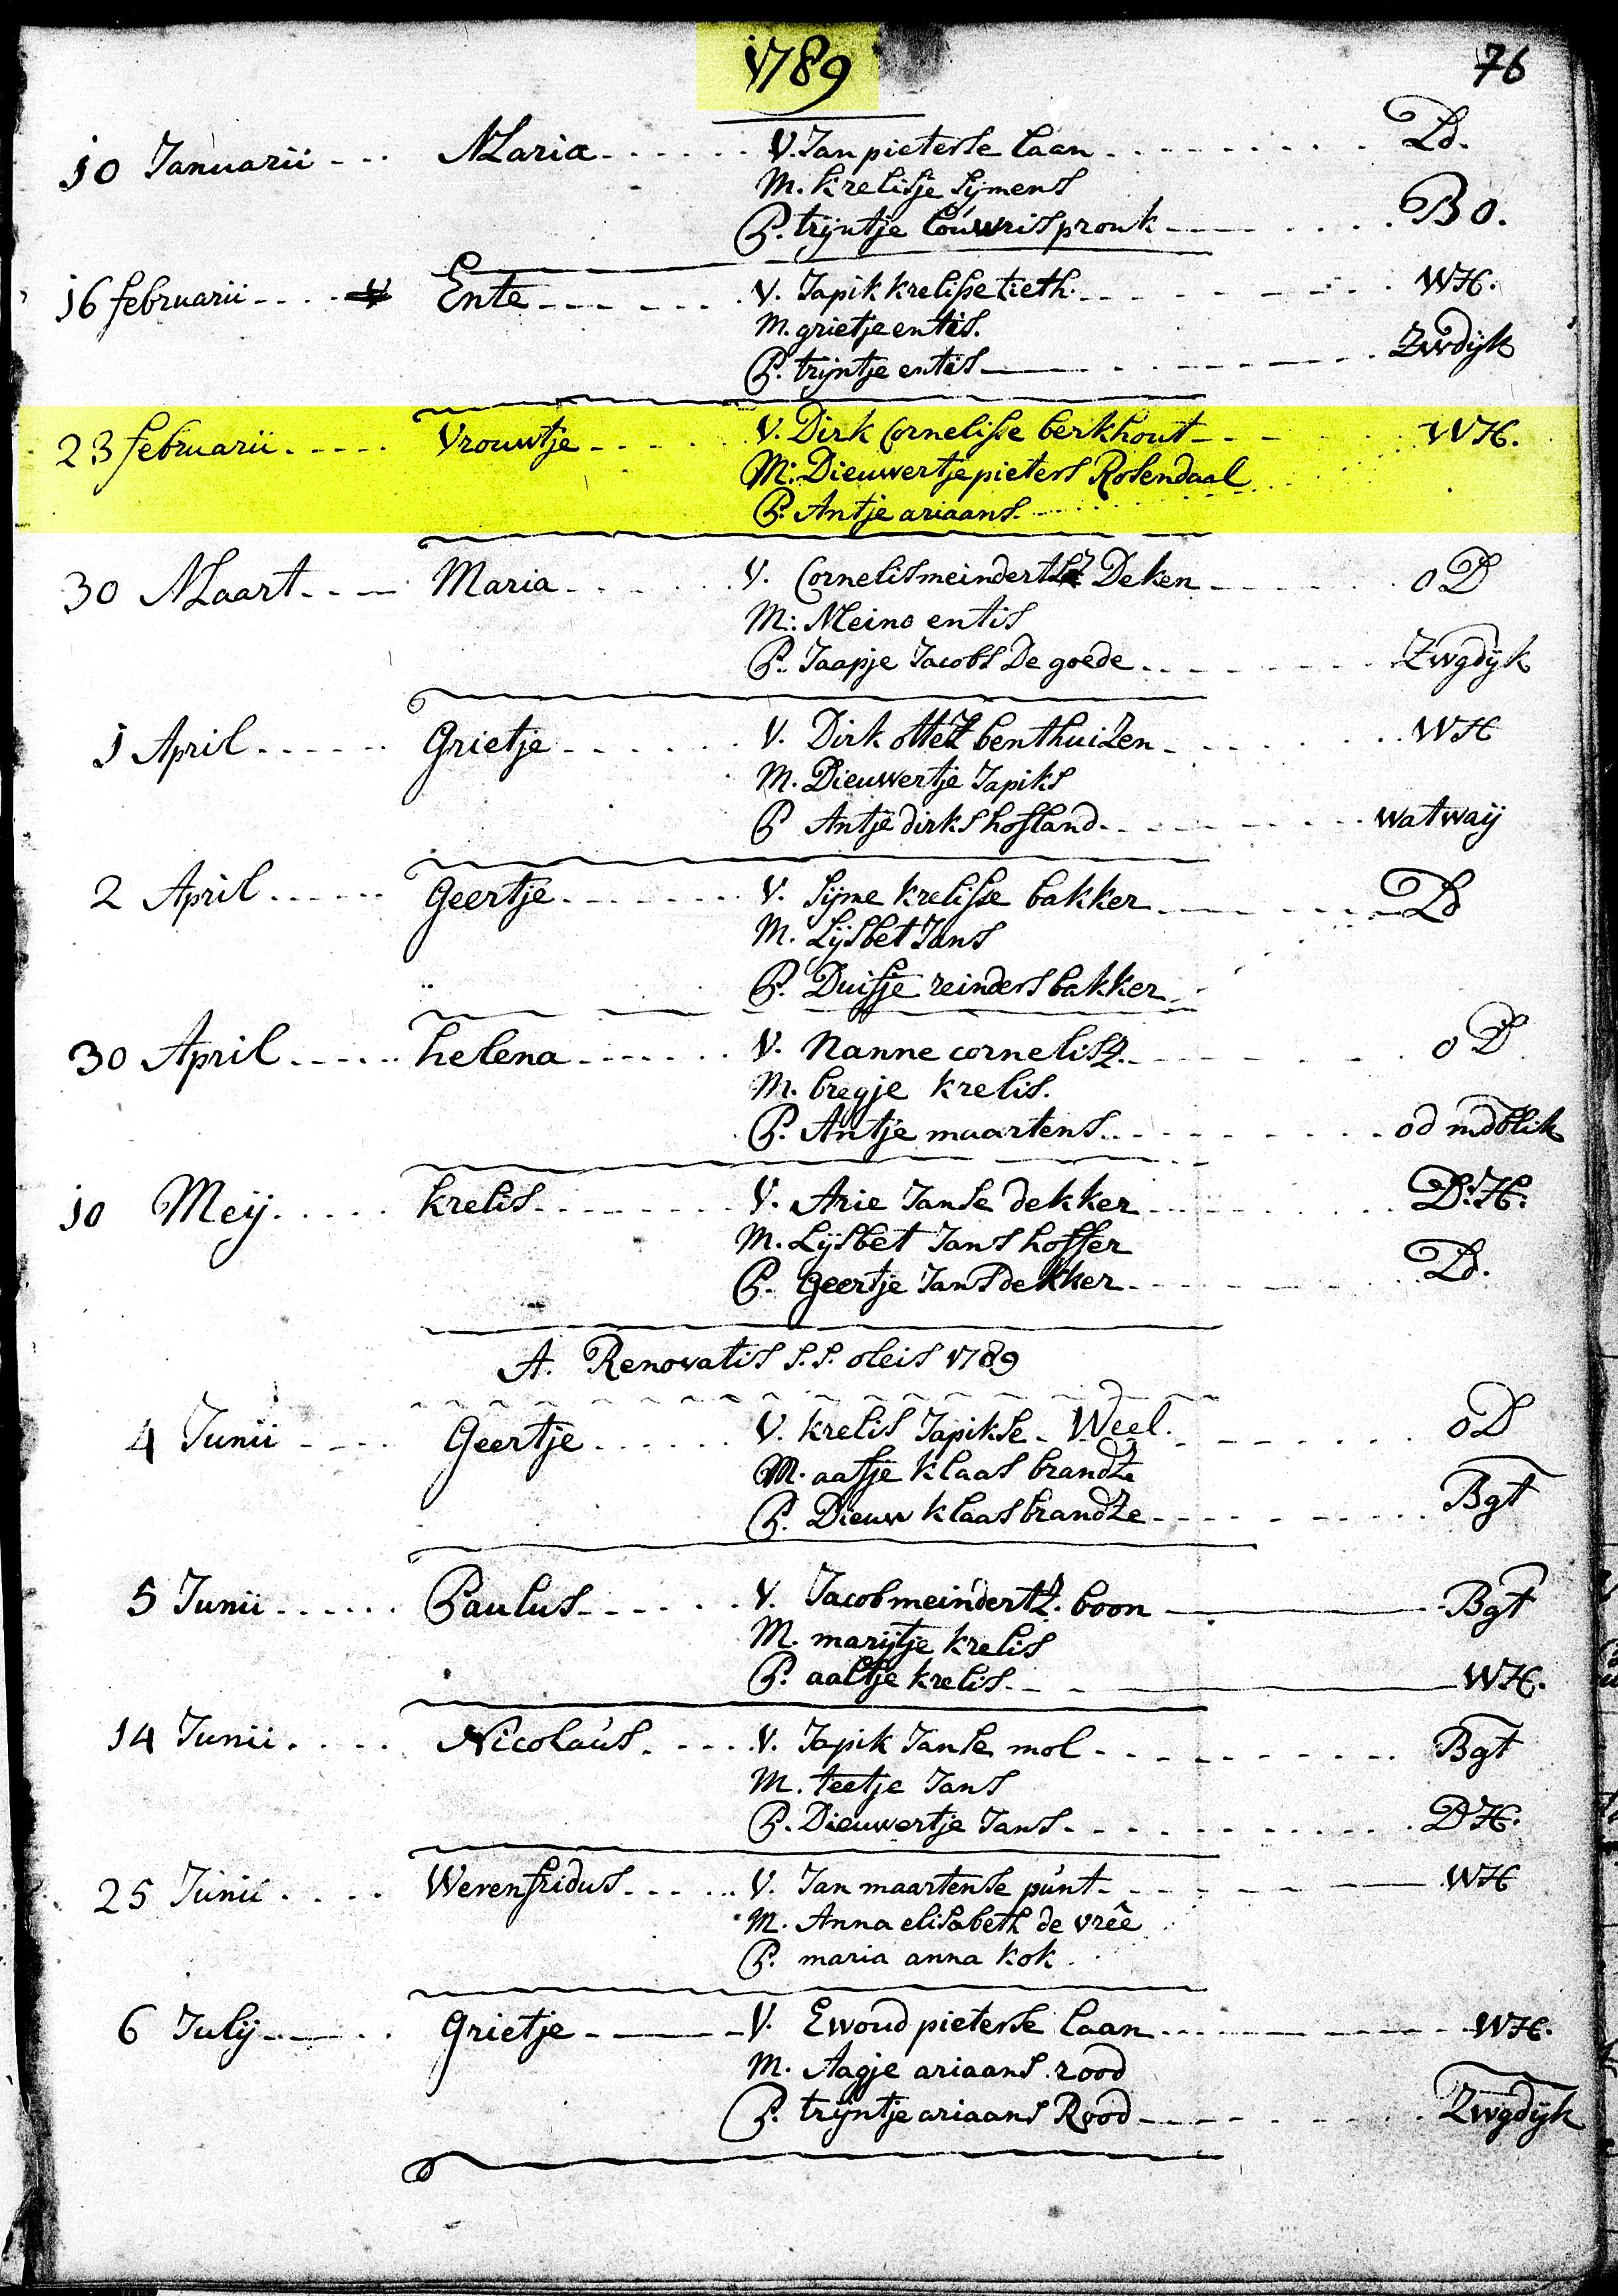 1789
76
10 Januarii Maria V. Jan pietersse laan Ld.
M. krelisje Sijmens
P. trijntje louwris pronk Bo.
16 februarii Ente V. Japik krelisse tieth. WH.
M. grietje entis.
P. trijntje entis Zwdijk
23 februarii Vrouwtje V. Dirk Cornelisse berkhout WH.
M: Dieuwertje pieters Rosendaal
P. Antje ariaans.
30 Maart Maria V. Cornelis meindertsz Deken oD
M: Meino entis
P. Jaapje Jacobs De goede Zwgdijk
1 April Grietje V. Dirk ottez benthuizen WH
M. Dieuwertje Japiks
P Antje dirks hofland watwaij
2 April Geertje V. Sijme krelisse bakker Ld
M. Lijsbet Jans
P. Duisje reinders bakker
30 April helena V. Nanne cornelisz. oD
M. bregje krelis.
P. Antje maartens od mdblik
10 Meij krelis V. Arie Janse dekker D:H:
M. Lijsbet Jans hoffer
P. Geertje Jans dekker Ld.
A. Renovatis S.S. oleis 1789
4 Junii Geertje V. krelis Japikse Weel. oD
M. aafje klaas brandze
P. Dieuw klaas brandze Bgt
5 Junii Paulus V. Jacob meindertz. boon Bgt
M. marijtje krelis
P. aaltje krelis. WH.
14 Junii Nicolaus V. Japik Janse mol Bgt
M. teetje Jans
P. Dieuwertje Jans DH.
25 Junii Werenfridus V. Jan maartense punt WH
M. Anna elisabeth de vreê
P. maria anna kok
6 Julij Grietje V. Ewoud pietersse laan WH.
M. Aagje ariaans rood
P. trijntje ariaans Rood Zwgdijk